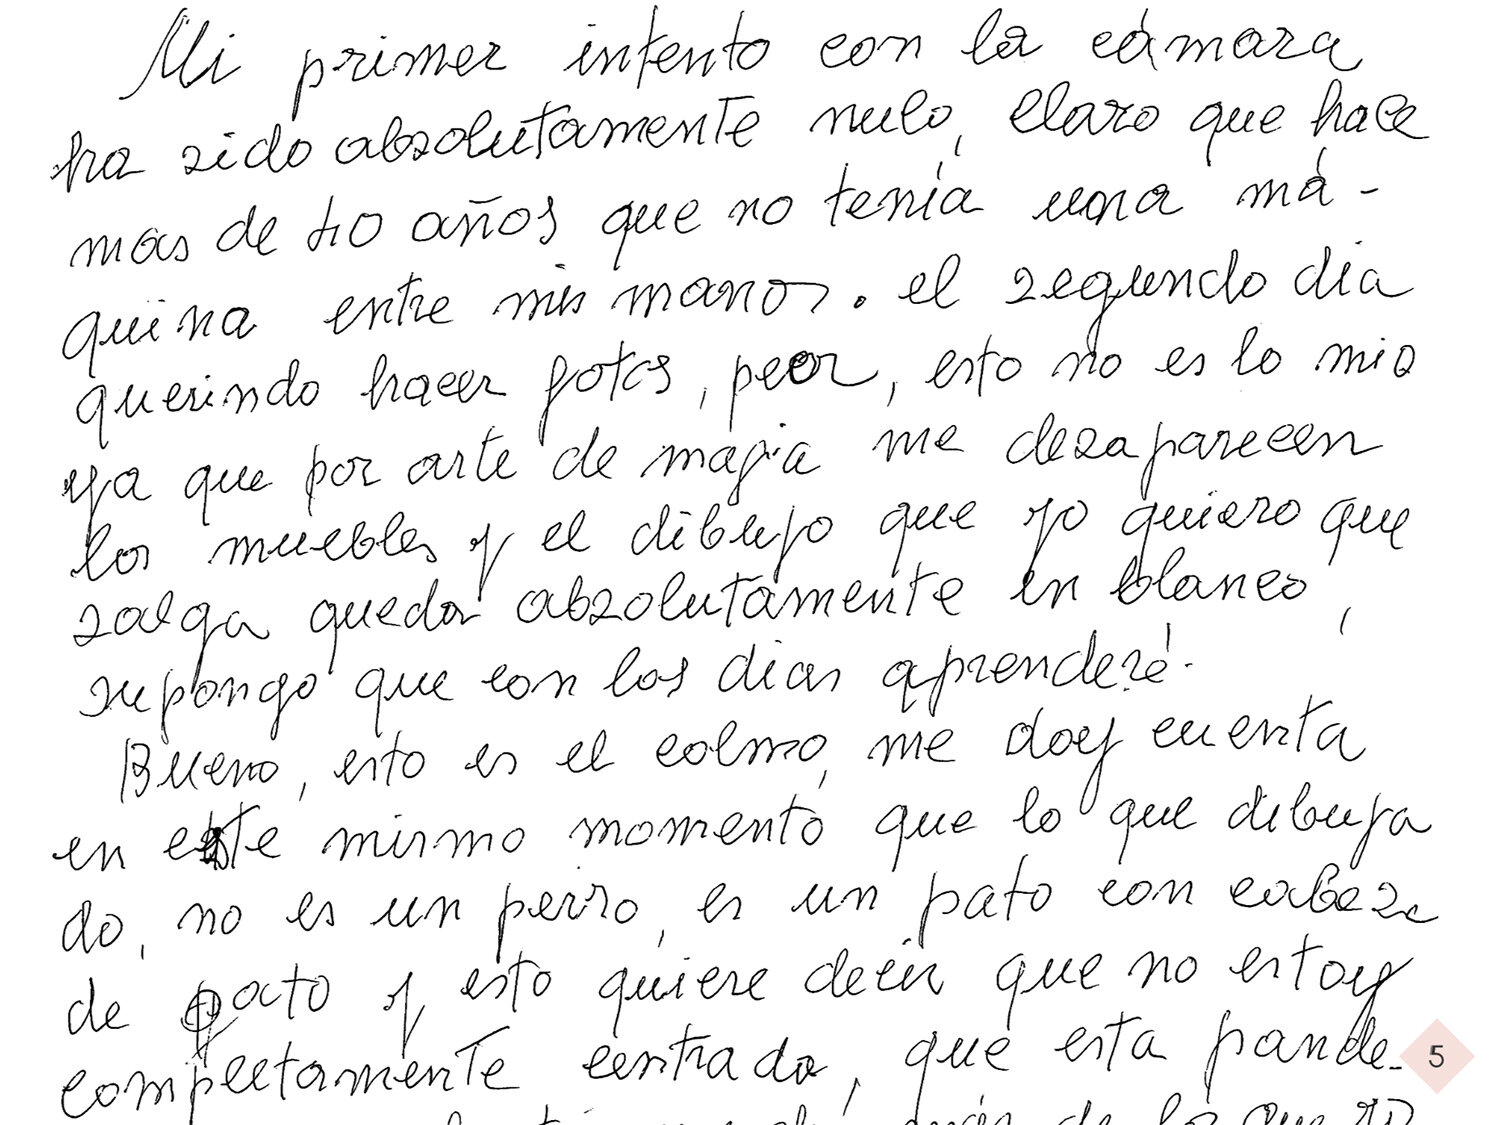 Mi primer intento con la cámara
ha sido absolutamente nulo, claro que hace
mas de 40 años que no tenía una má-
quina entre mis manos. el segundo dia
querindo hacer fotos, peor, esto no es lo mio
ya que por arte de magia me desaparecen
los muebles y el dibujo que yo quiero que
salga queda absolutamente en blanco,
supongo que con los dias aprenderé.
Bueno, esto es el colmo, me doy cuenta
en este mismo momento que lo que dibuja
do, no es un perro, es un pato con cabeza
de gato y esto quiere decir que no estoy
completamente centrado, que esta pande-
más de los que yo
5